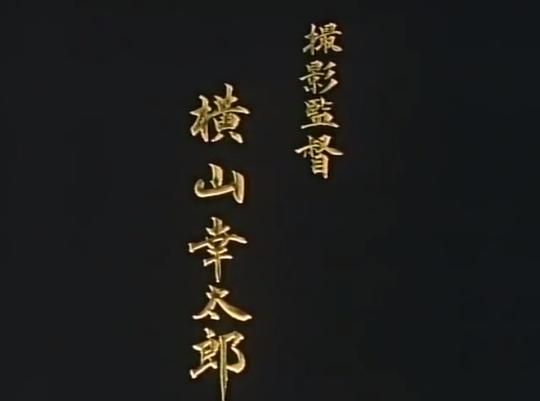 撮影監督
横山幸太郎